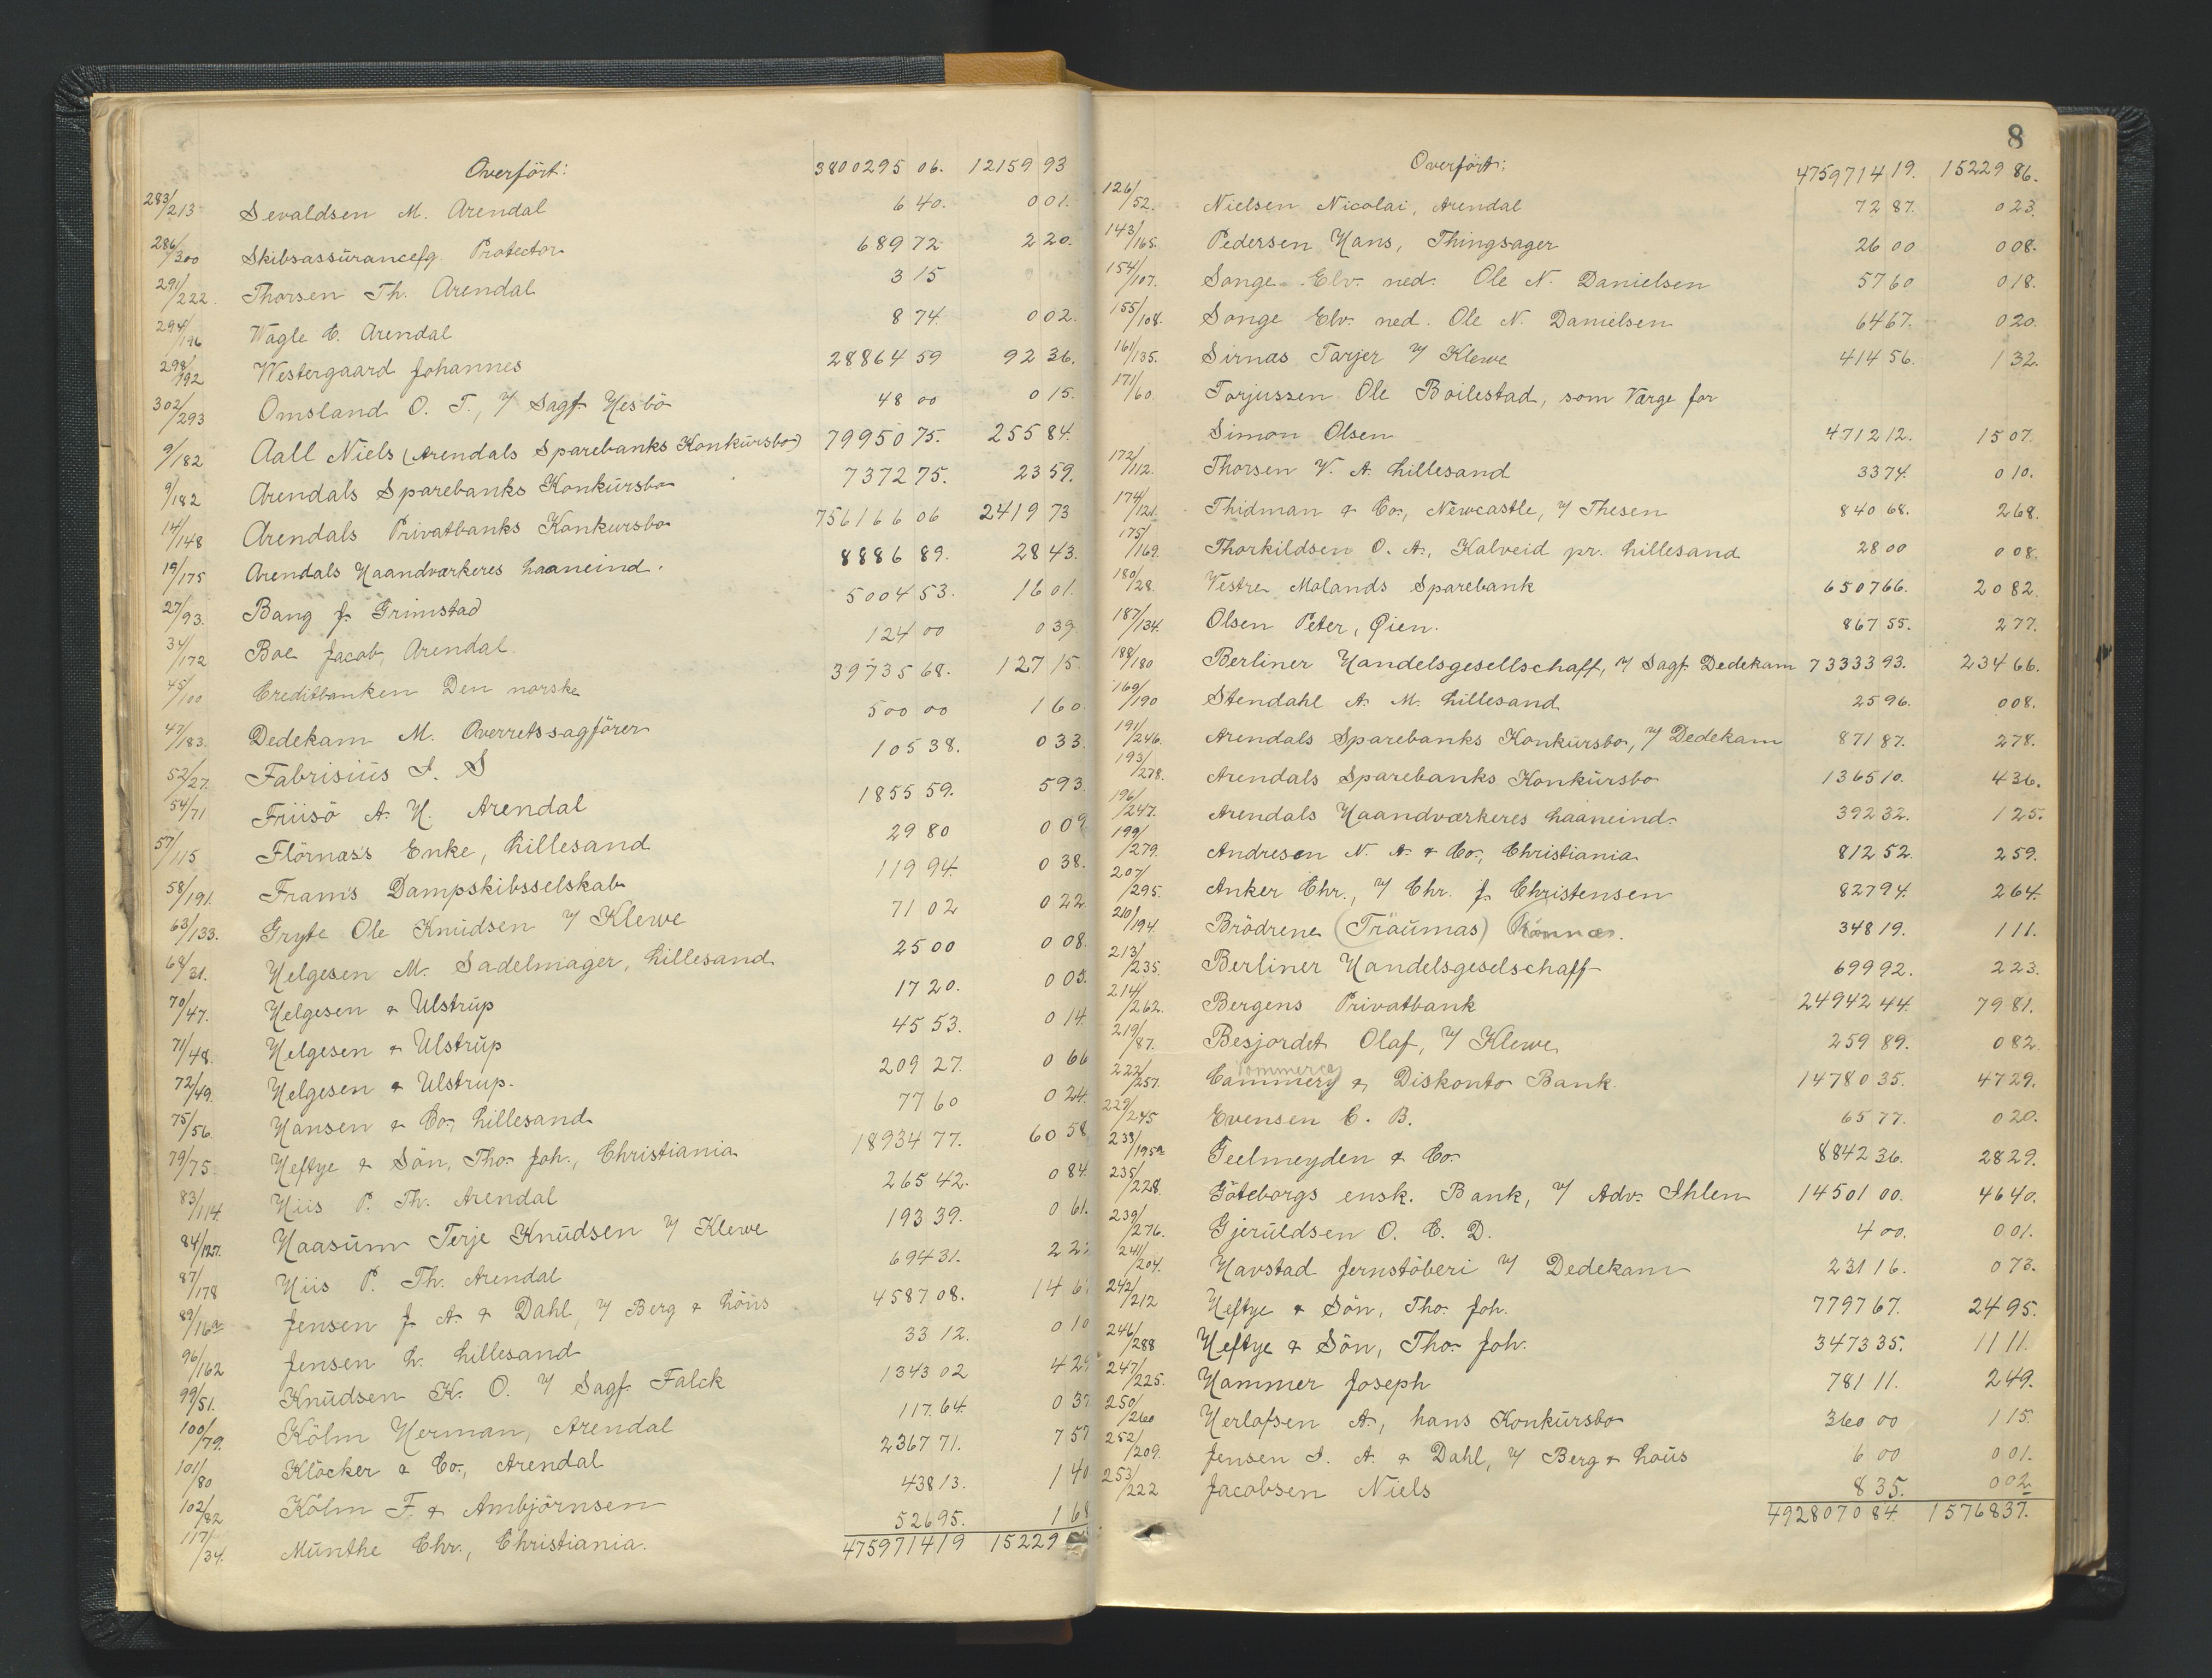 Overført: 3800295 06. 12159 93
283/213 Sevaldsen M. Arendal 6 40. 0 01.
286/300 Skibsassürancefg. Protector 689 72 2 20.
291/222. Thorsen Th. Arendal 3 15
294/196 Vagle C. Arendal 8 74. 0 02.
298/192 Westergaard Johannes 28864 59 92 36.
302/293 Omsland O. T., ץ Sagf. Hesbö 48 00 0 15.
9/182 Aall Niels (Arendals Sparebanks Konkürsbo) 79950 75. 255 84.
9/182 Arendals Sparebanks Konkürsbo 7372 75. 23 59.
14/148 Arendals Privatbanks Konkursbo 756166 06 2419 73
19/175 Arendals Haandværkeres Laaneind. 8886 89. 28 43.
27/93. Bang J. Grimstad 5004 53. 16 01.
34/172 Boe Jacob, Arendal. 124 00 0 39
45/100 Creditbanken Den norske 39735 68. 127 15.
47/83. Dedekam M. Overretssagförer 500 00 1 60.
52/27. Fabrisiüs I. S 105 38. 0 33.
54/71 Friisö A. H. Arendal 1855 59. 5 93.
57/115 Flörnæs's Enke, Lillesand 29 80 0 09
58/191. Fram's Dampskibsselskab 119 94. 0 38.
63/133. Gryte Ole Knüdsen y/ Klewe 71 02 0 22
68/31. Helgesen M. Sadelmager, Lillesand 25 00 0 08.
70/47. Helgesen & Ulstrüp 17 20. 0 05.
71/48. Helgesen & Ulstrüp 45 53. 0 14.
72/49. Helgesen & Ulstrup. 209 27. 0 66
75/56. Hansen & Co., Lillesand 77 60 0 24.
79/75. Heftye & Sön, Thos. Joh., Christiania 18934 77. 60 58
83/114. Hiis P. Th. Arendal 265 42. 0 84.
84/127. Haasüm Terje Knüdsen y/ Klewe 193 39. 0 61.
87/178 Hiis P. Th. Arendal 694 31. 2 22
89/16a Jensen J. A. & Dahl, y/ Berg & Löüs 4587 08. 14 6
96/162 Jensen L. Lillesand 33 12. 0 10
99/51. Knüdsen K. O. y/ Sagf. Falck 1343 02 4 29
100/79. Kölm Herman, Arendal 117. 64. 0 37
101/80 Klöcker & Co., Arendal 2367 71. 7 57
102/82 Kölm F. & Ambjörnsen 438 13. 1 40
117/34. Münthe Chr., Christiania. 526 95. 1 68
4759714 19 15229
8
Overført: 4759714 19. 15229 86.
126/52. Nielsen Nicolai, Arendal 72 87. 0 23.
143/165. Pedersen Hans, Thingsager 26 00 0 08.
154/107. Songe Elv. ned. Ole N. Danielsen 57 60 0 18.
155/108. Songe Elv. ned. Ole N. Danielsen 64 67. 0 20.
161/135. Sirnæs Tarjer y/ Klewe 414 56. 1 32.
171/60. Torjussen Ole Boilestad, som Værge for
Simon Olsen 4712 12. 15 07.
172/112. Thorsen W. A. Lillesand 33 74. 0 10.
174/121. Thidman & Co., Newcastle, y/ Thesen 840 68. 2 68.
175/169. Thorkildsen O. A., Kalveid pr. Lillesand 28 00 0 08.
180/28. Vestre Molands Sparebank 6507 66. 20 82.
187/134. Olsen Peter, Øien. 867 55. 2 77.
188/180 Berliner Handelsgesellschaff, y/ Sagf. Dedekam 73333 93. 234 66.
169/190 Stendahl A. M. Lillesand 25 96. 0 08.
191/246. Arendals Sparebanks Konkürsbo, y/ Dedekam 871 87. 2 78.
193/278. Arendals Sparebanks Konkürsbo 1365 10. 4 36.
196/247. Arendals Haandværkeres Laaneind. 392 32. 1 25.
199/279. Andresen N. A. & Co., Christiania 812 52. 2 59.
207/295. Anker Chr., y/ Chr. J. Christensen 827 94. 2 64.
210/194. Brödrene (Träumas) 348 19. 1 11.
213/235. Berliner Handelsgeselschaff 699 92. 2 23.
214/262. Bergens Privatbank 24942 44. 79 81.
219/87. Besjordet Olaf, y/ Klewe 259 89. 0 82.
222/257. Cammery & Diskonto Bank. 14780 35. 47 29.
229/245 Evensen C. B. 65 77. 0 20.
233/195a Geelmeyden & Co. 8842 36. 28 29.
235/228. Göteborgs ensk. Bank, y/ Adv. Ihlen 14501 00. 46 40.
239/276. Gjerüldsen O. C. D. 4 00. 0 01.
241/204. Havstad Jernstöberi y/ Dedekam 231 16. 0 73.
242/212 Heftye & Sön, Thos. Joh. 7797 67. 24 95.
246/288 Heftye & Sön, Thos. Joh. 3473 35. 11 11.
247/225. Hammer Joseph 781 11. 2 49.
250/260 Herlofsen A., hans Konkürsbo 360 00 1 15.
252/209. Jensen I. A. & Dahl, y/ Berg & Loüs 6 00 0 01.
253/222 Jacobsen Niels 8 35. 0 02
4928070 84. 15768 37.